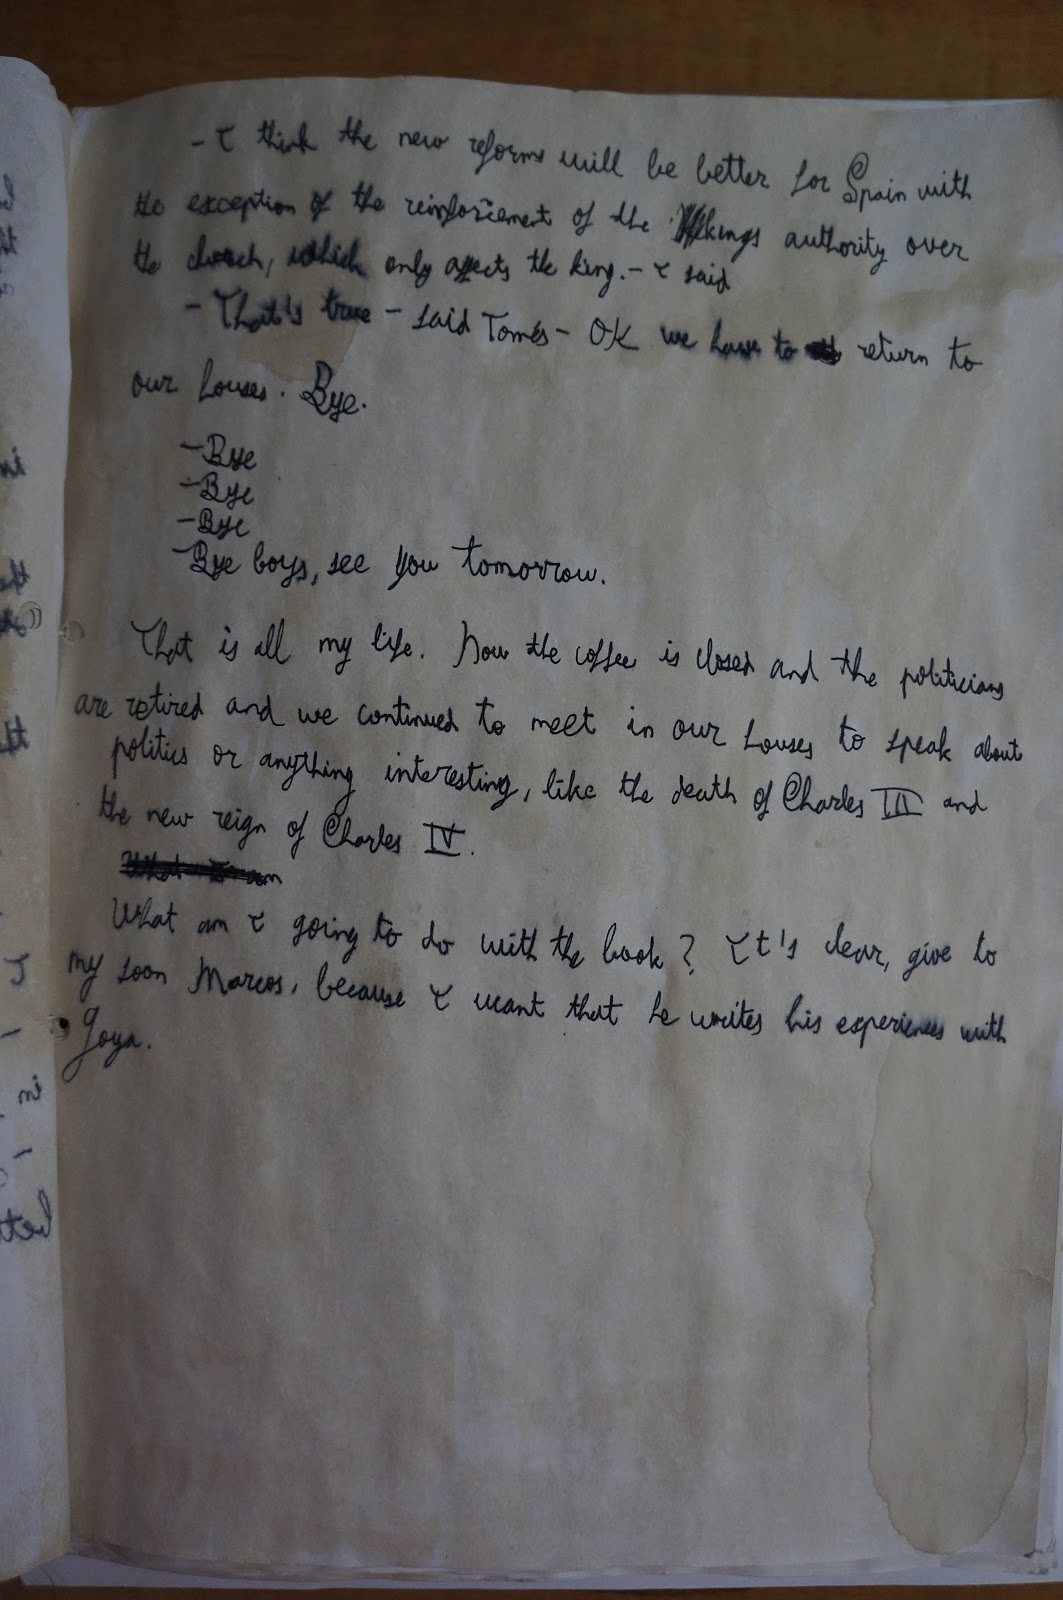 - I think the new reforms will be better for Spain with
the exception of the reinforcement of the kings authority over
the church, which only affects the king. - I said
- That's true - said Tomés - OK we have to return to
our houses. Bye.
- Bye
- Bye
- Bye
- Bye boys, see you tomorrow.
That is all my life. Now the coffee is closed and the politicians
are retired and we continued to meet in our houses to speak about
politics or anything interesting, like the death of Charles III and
the new reign of Charles IV.
What am I going to do with the book? It's clear, give to
my soon Marcos, because I want that he writes his experiences with
Goya.